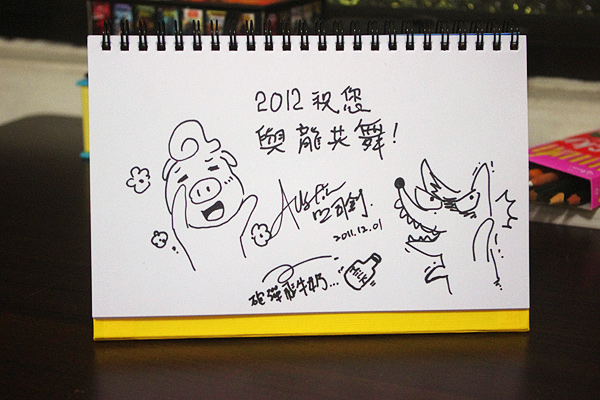 2012 祝您
與龍共舞!
Austin
2011.12.01
砲彈 牛奶...